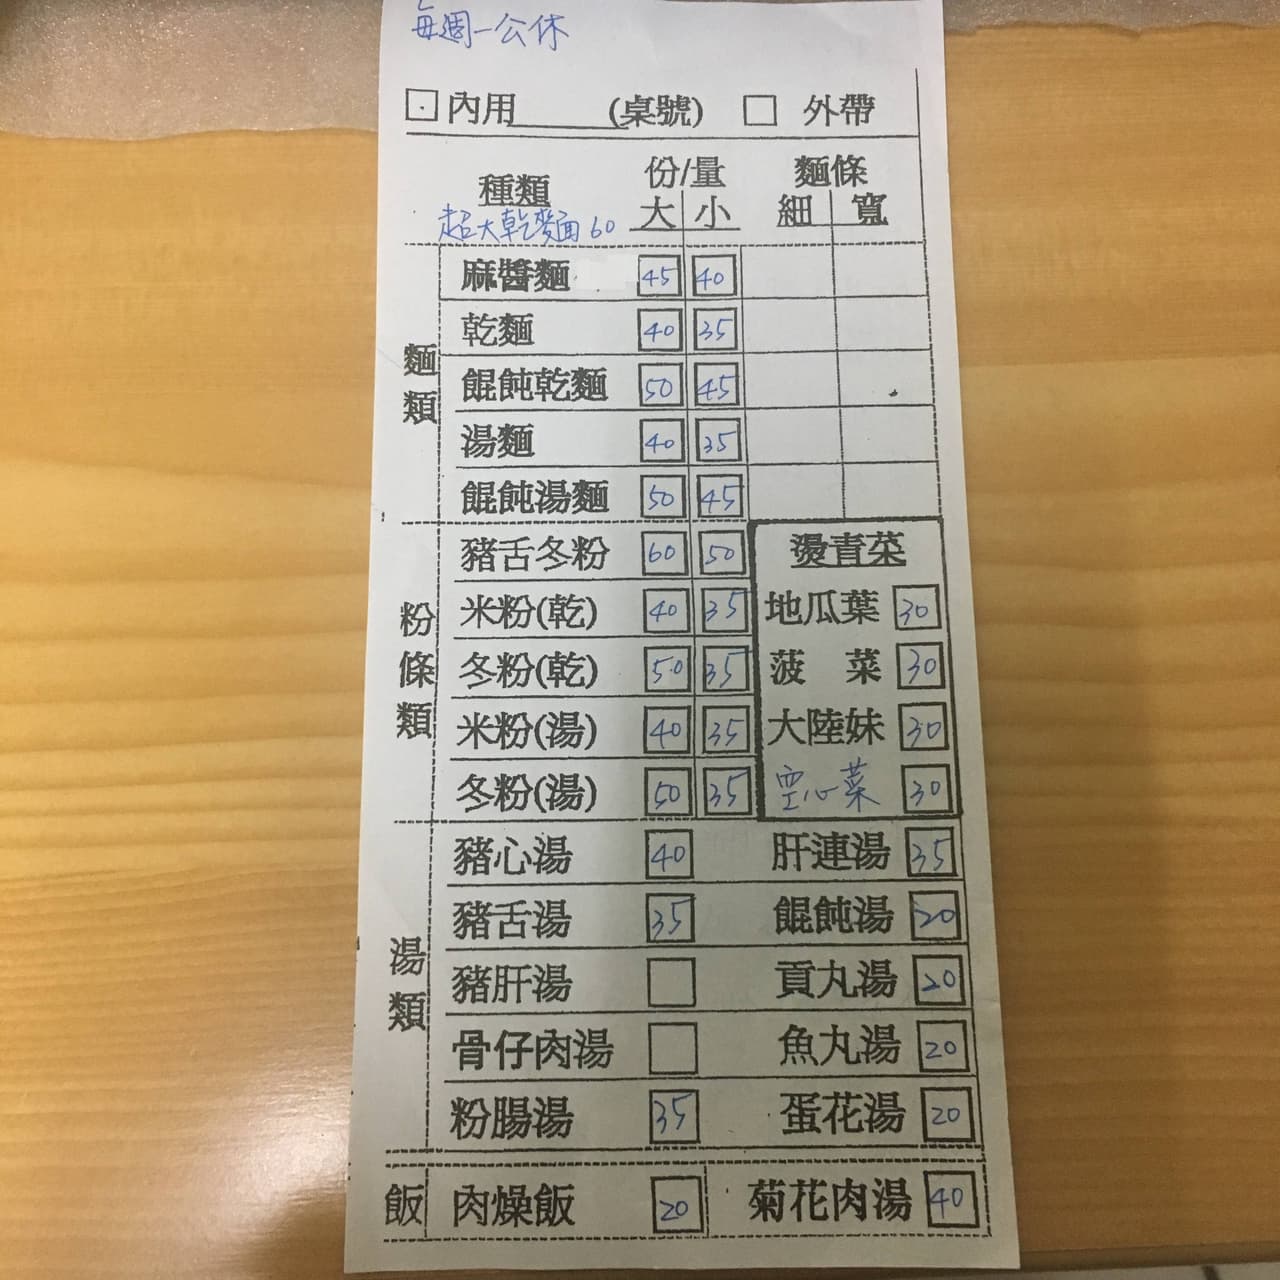 每週一公休
內用______(桌號) 外帶
種類 份/量 麵條
大 小 細 寬
超大乾麵60
麵類
麻醬麵 45 40
乾麵 40 35
餛飩乾麵 50 45
湯麵 40 35
餛飩湯麵 50 45
粉條類
豬舌冬粉 60 50
米粉(乾) 40 35
冬粉(乾) 50 35
米粉(湯) 40 35
冬粉(湯) 50 35
燙青菜
地瓜葉 30
菠 菜 30
大陸妹 30
空心菜 30
湯類
豬心湯 40 肝連湯 35
豬舌湯 35 餛飩湯 20
豬肝湯 貢丸湯 20
骨仔肉湯 魚丸湯 20
粉腸湯 35 蛋花湯 20
飯 肉燥飯 20 菊花肉湯 40